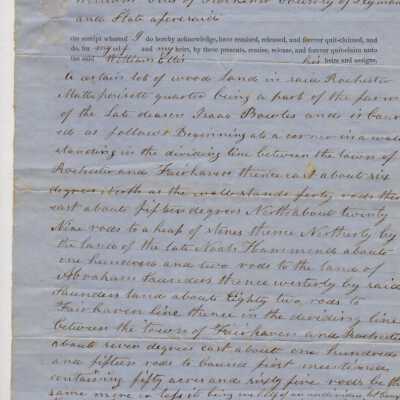 William Ellis of Rochester County of Plymouth
and State aforesaid
the receipt whereof I do hereby acknowledge, have remised, released, and forever quit-claimed, and
do, for myself and my heirs, by these presents, remise, release, and forever quitclaim unto
the said William Ellis his heirs and assigns,
A certain lot of wood land in said Rochester
Mattapoisett quarter being a part of the farm
of the Late deacon Isaac Bowles and is boun
ed as follows Beginning at a corner in a wall
standing in the dividing line between the towns of
Rochester and Fairhaven thence east about six
degrees north as the wall stands forty rods then
east about fifteen degrees North about twenty
Nine rods to a heap of stones thence Northerly by
the land of the late Noah Hammond about
one hundred and two rods to the land of
Abraham Saunders thence westerly by said
Saunders land about Eighty two rods to
Fairhaven line thence in the dividing line
between the towns of Fairhaven and Rochester
about seven degrees east about one hundred
and fifteen rods to bound first mentioned
containing fifty acres and sixty five rods be the
same more or less it being one half of an undivided lot